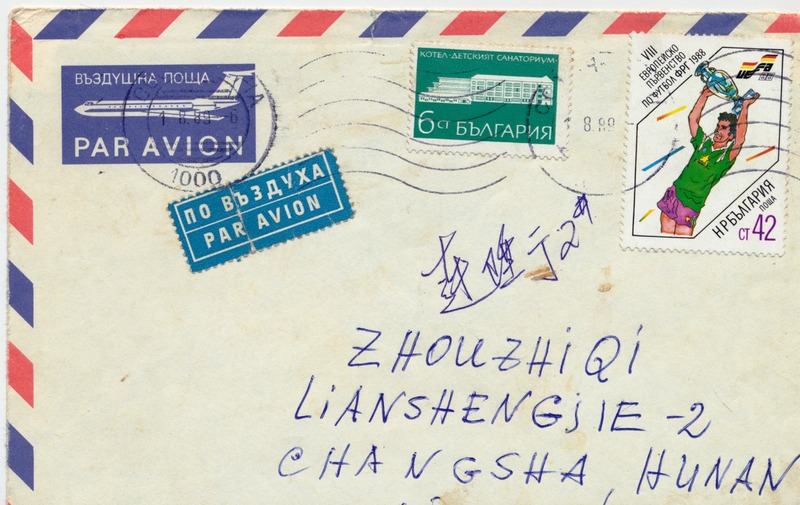 ВЪЗДУШНА ПОЩА
PAR AVION
1.8.89
6
1000
ПО ВЪЗДУХА
PAR AVION
КОТЕЛ-ДЕТСКИЯТ САНАТОРИУМ
6 СТ БЪЛГАРИЯ
8.89
VIII
ЕВРОПЕЙСКО
ПЪРВЕНСТВО
ПО ФУТБОЛ ФРГ 1988
UEFA
88
НР БЪЛГАРИЯ
ПОЩА
СТ 42
ZHOUZHIQI
LIANSHENGJIE-2
CHANGSHA, HUNAN